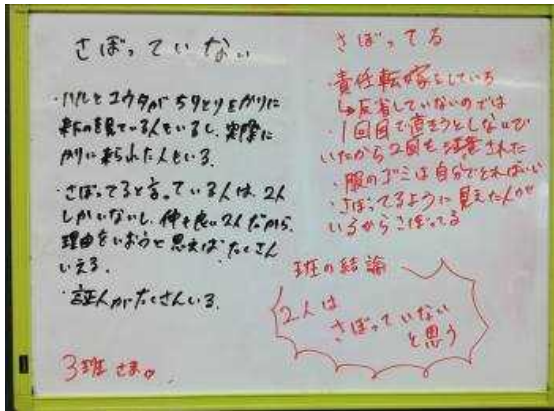 さぼっていない
・ハルとユウタがちりとりをかりに
来たの見ている人もいるし、実際に
かりに来られた人もいる。
・さぼってると言っている人は、2人
しかいないし、仲も良い2人だから、
理由をいおうと思えばたくさん
いえる。
・証人がたくさんいる。
3班
さぼってる
責任転嫁をしている
↳反省していないのでは
・1回目で直そうとしないで
いたから2回も注意された
・服のゴミは自分でとればいい
・さぼってるように見えた人が
いるからさぼってる
班の結論
2人は
さぼっていない
と思う